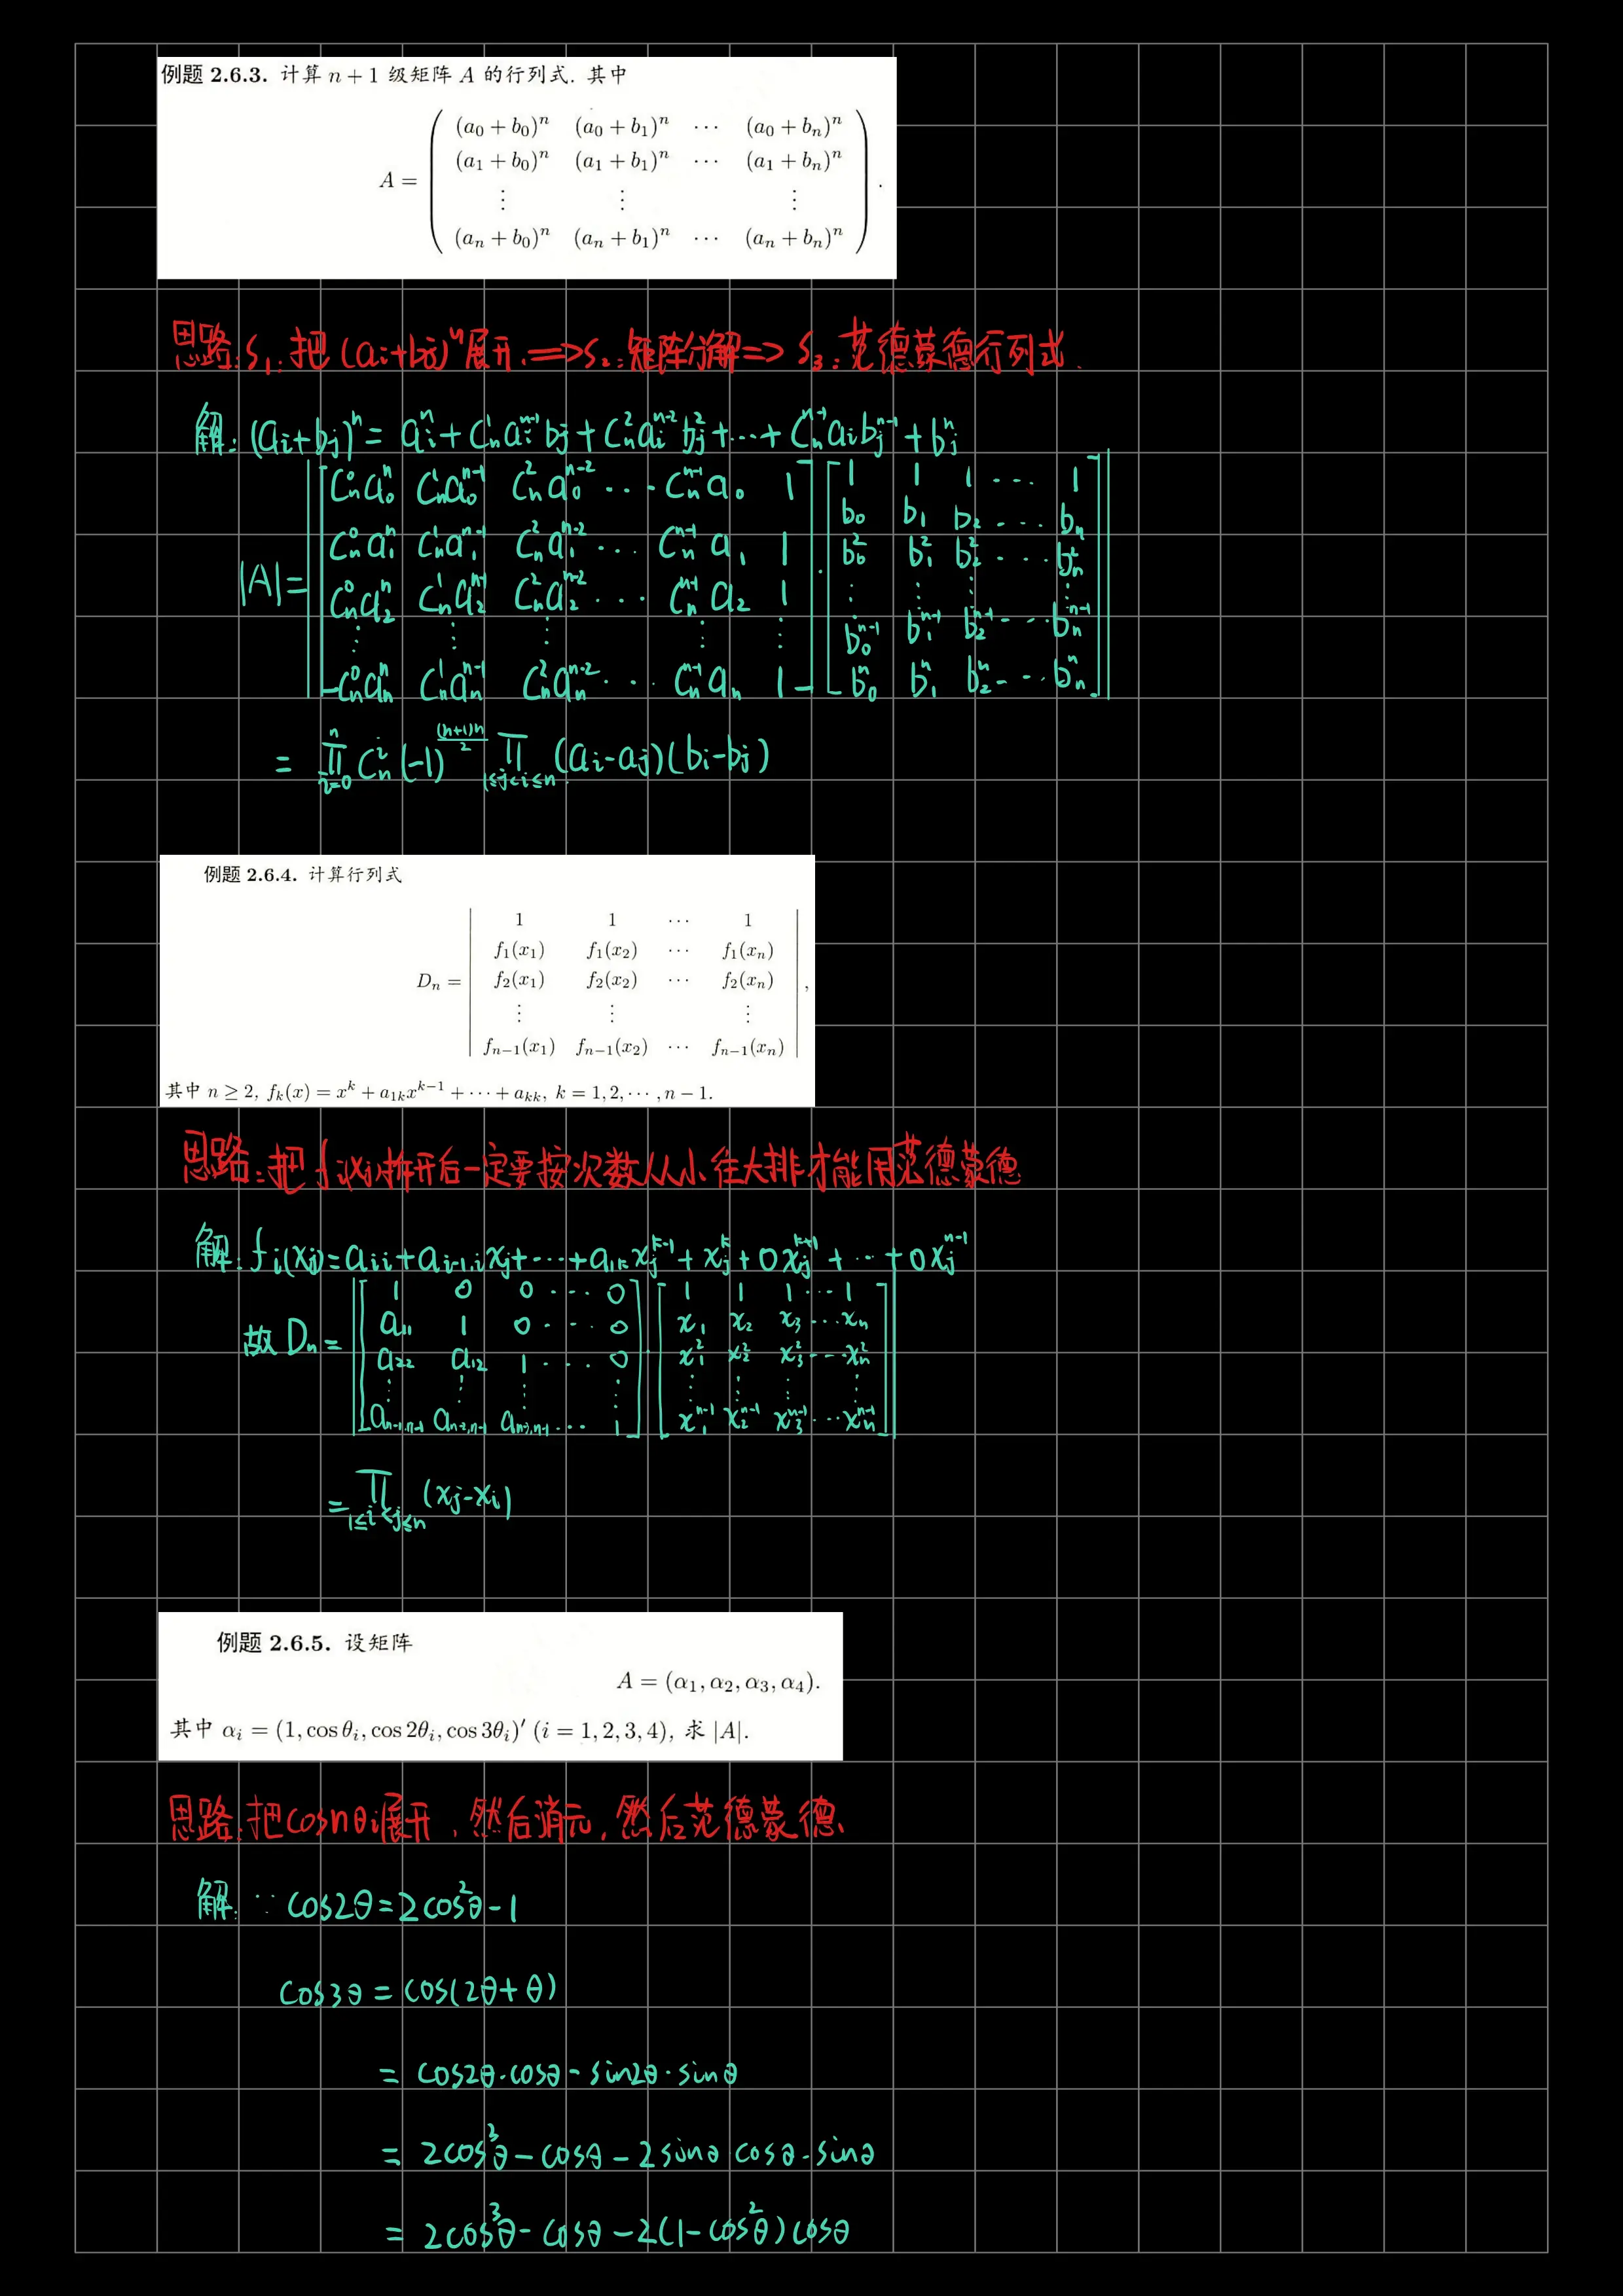 例题 2.6.3. 计算 n + 1 级矩阵 A 的行列式. 其中
A = \begin{pmatrix} (a_0 + b_0)^n & (a_0 + b_1)^n & \cdots & (a_0 + b_n)^n \\ (a_1 + b_0)^n & (a_1 + b_1)^n & \cdots & (a_1 + b_n)^n \\ \vdots & \vdots & & \vdots \\ (a_n + b_0)^n & (a_n + b_1)^n & \cdots & (a_n + b_n)^n \end{pmatrix}.
思路: S_1: 把 (a_i+b_j)^n 展开. ⟹ S_2: 矩阵分解 ⟹ S_3: 范德蒙德行列式.
解: (a_i+b_j)^n = a_i^n + C_n^1 a_i^{n-1} b_j + C_n^2 a_i^{n-2} b_j^2 + \cdots + C_n^{n-1} a_i b_j^{n-1} + b_j^n
|A| = \left| \begin{bmatrix} C_n^0 a_0^n & C_n^1 a_0^{n-1} & C_n^2 a_0^{n-2} & \cdots & C_n^{n-1} a_0 & 1 \\ C_n^0 a_1^n & C_n^1 a_1^{n-1} & C_n^2 a_1^{n-2} & \cdots & C_n^{n-1} a_1 & 1 \\ C_n^0 a_2^n & C_n^1 a_2^{n-1} & C_n^2 a_2^{n-2} & \cdots & C_n^{n-1} a_2 & 1 \\ \vdots & \vdots & \vdots & & \vdots & \vdots \\ C_n^0 a_n^n & C_n^1 a_n^{n-1} & C_n^2 a_n^{n-2} & \cdots & C_n^{n-1} a_n & 1 \end{bmatrix} \cdot \begin{bmatrix} 1 & 1 & 1 & \cdots & 1 \\ b_0 & b_1 & b_2 & \cdots & b_n \\ b_0^2 & b_1^2 & b_2^2 & \cdots & b_n^2 \\ \vdots & \vdots & \vdots & & \vdots \\ b_0^{n-1} & b_1^{n-1} & b_2^{n-1} & \cdots & b_n^{n-1} \\ b_0^n & b_1^n & b_2^n & \cdots & b_n^n \end{bmatrix} \right|
= \prod_{i=0}^{n} C_n^i (-1)^{\frac{(n+1)n}{2}} \prod_{1≤j<i≤n} (a_i-a_j)(b_i-b_j)
例题 2.6.4. 计算行列式
D_n = \begin{vmatrix} 1 & 1 & \cdots & 1 \\ f_1(x_1) & f_1(x_2) & \cdots & f_1(x_n) \\ f_2(x_1) & f_2(x_2) & \cdots & f_2(x_n) \\ \vdots & \vdots & & \vdots \\ f_{n-1}(x_1) & f_{n-1}(x_2) & \cdots & f_{n-1}(x_n) \end{vmatrix},
其中 n ≥ 2, f_k(x) = x^k + a_{1k}x^{k-1} + \cdots + a_{kk}, k = 1, 2, \cdots, n - 1.
思路: 把 f_i(x_j) 拆开后一定要按次数从小往大排才能用范德蒙德
解: f_i(x_j) = a_{ii} + a_{i-1,i} x_j + \cdots + a_{1k} x_j^{k-1} + x_j^k + 0 x_j^{k+1} + \cdots + 0 x_j^{n-1}
故 D_n = \left| \begin{bmatrix} 1 & 0 & 0 & \cdots & 0 \\ a_{11} & 1 & 0 & \cdots & 0 \\ a_{22} & a_{12} & 1 & \cdots & 0 \\ \vdots & \vdots & \vdots & & \vdots \\ a_{n-1,n-1} & a_{n-2,n-1} & a_{n-3,n-1} & \cdots & 1 \end{bmatrix} \cdot \begin{bmatrix} 1 & 1 & 1 & \cdots & 1 \\ x_1 & x_2 & x_3 & \cdots & x_n \\ x_1^2 & x_2^2 & x_3^2 & \cdots & x_n^2 \\ \vdots & \vdots & \vdots & & \vdots \\ x_1^{n-1} & x_2^{n-1} & x_3^{n-1} & \cdots & x_n^{n-1} \end{bmatrix} \right|
= \prod_{1≤i<j≤n} (x_j-x_i)
例题 2.6.5. 设矩阵
A = (α_1, α_2, α_3, α_4).
其中 α_i = (1, cos θ_i, cos 2θ_i, cos 3θ_i)′ (i = 1, 2, 3, 4), 求 |A|.
思路: 把cosnθ_i展开, 然后消元, 然后范德蒙德.
解: ∵ cos2θ = 2cos²θ - 1
cos3θ = cos(2θ + θ)
= cos2θ·cosθ - sin2θ·sinθ
= 2cos³θ - cosθ - 2sinθ cosθ·sinθ
= 2cos³θ - cosθ - 2(1-cos²θ)cosθ